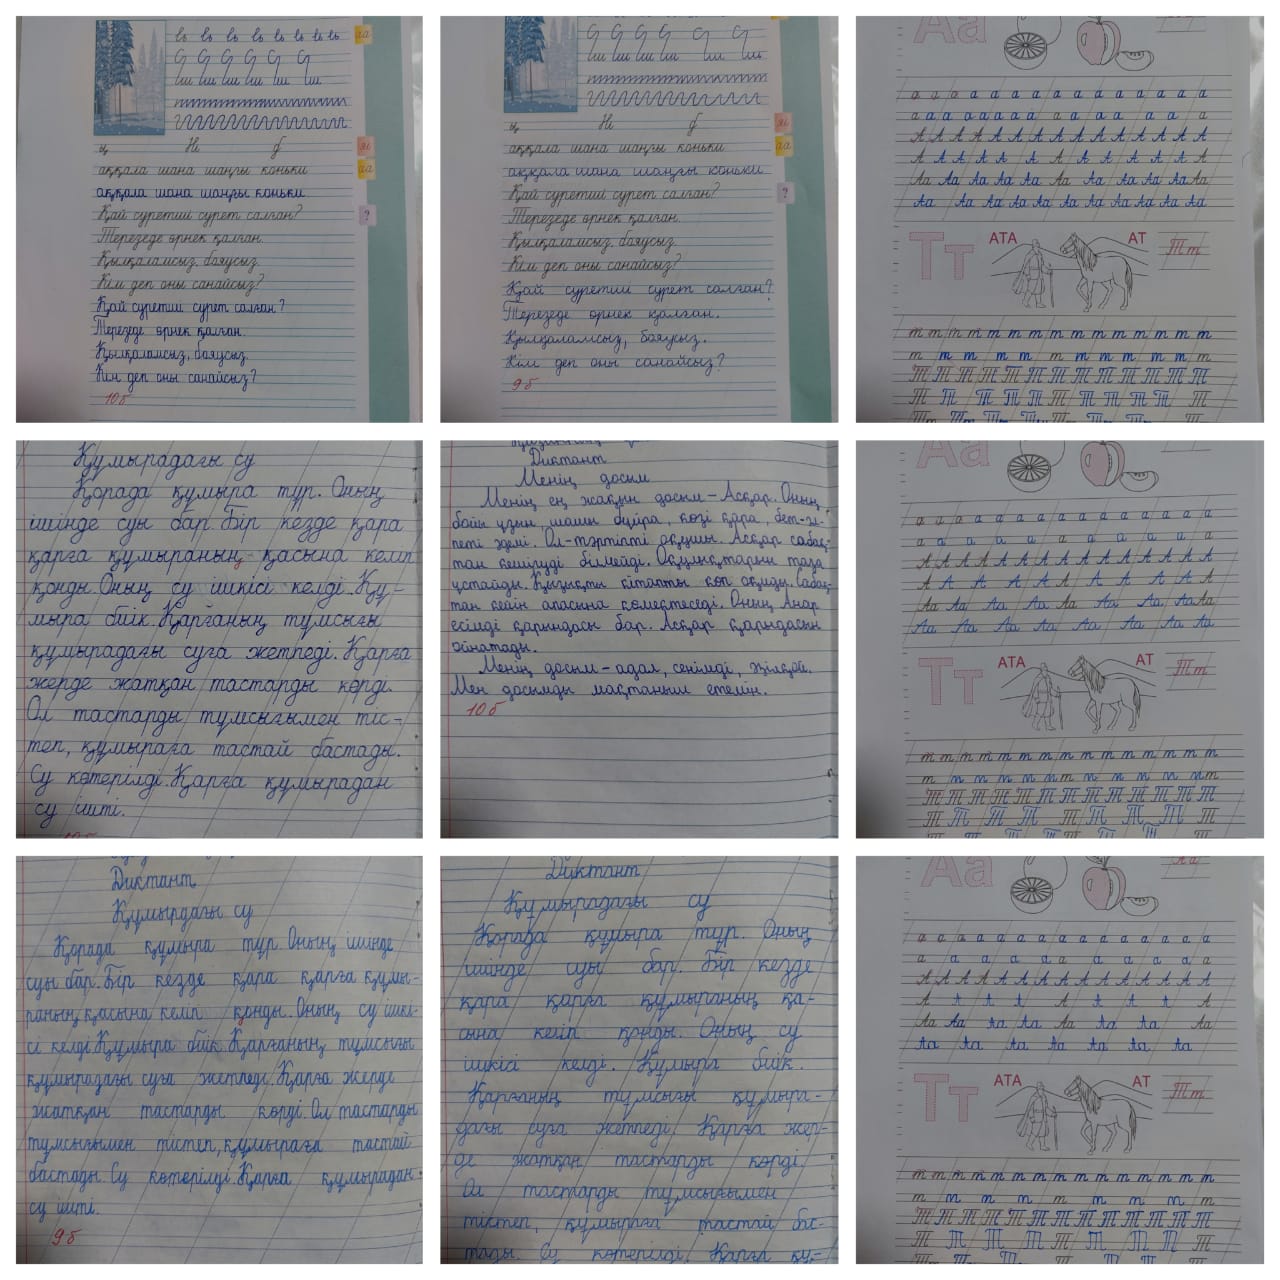 аққала шана шаңғы коньки
аққала шана шаңғы коньки
Қай суретші сурет салған?
Терезеде өрнек қалған.
Қылқаламсыз, бояусыз.
Кім деп оны санайсыз?
Қай суретші сурет салған?
Терезеде өрнек қалған.
Қылқаламсыз, бояусыз.
Кім деп оны санайсыз?
10б
аққала шана шаңғы коньки
аққала шана шаңғы коньки
Қай суретші сурет салған?
Терезеде өрнек қалған.
Қылқаламсыз, бояусыз.
Кім деп оны санайсыз?
Қай суретші сурет салған?
Терезеде өрнек қалған.
Қылқаламсыз, бояусыз.
Кім деп оны санайсыз?
9б
Аа
Тт АТА АТ Тт
Құмырадағы су
Қорада құмыра тұр. Оның
ішінде суы бар. Бір кезде қара
қарға құмыраның қасына келіп
қонды. Оның су ішкісі келді. Құ-
мыра биік. Қарғаның тұмсығы
құмырадағы суға жетпеді. Қарға
жерде жатқан тастарды көрді.
Ол тастарды тұмсығымен тіс-
теп, құмыраға тастай бастады.
Су көтерілді. Қарға құмырадан
су ішті.
Диктант
Менің досым
Менің ең жақын досым – Асқар. Оның
бойы ұзын, шашы бұйра, көзі қара, бет-әл-
петі әдемі. Ол – тәртіпті оқушы. Асқар сабақ-
тан кешігуді білмейді. Оқулықтарын таза
ұстайды. Қызықты кітапты көп оқиды. Сабақ-
тан кейін апасына көмектеседі. Оның Анар
есімді қарындасы бар. Асқар қарындасын
ойнатады.
Менің досым – адал, сенімді,
Мен досымды мақтаныш етемін.
10б
Аа
Тт АТА АТ Тт
Диктант
Құмырдағы су
Қорада құмыра тұр. Оның ішінде
суы бар. Бір кезде қара қарға құмы-
раның қасына келіп қонды. Оның су ішкі-
сі келді. Құмыра биік. Қарғаның тұмсығы
құмырадағы суға жетпеді. Қарға жерде
жатқан тастарды көрді. Ол тастарды
тұмсығымен тістеп, құмыраға тастай
бастады. Су көтерілді. Қарға құмырадан
су ішті.
9б
Диктант
Құмырадағы су
Қорада құмыра тұр. Оның
ішінде суы бар. Бір кезде
қара қарға құмыраның қа-
сына келіп қонды. Оның су
ішкісі келді. Құмыра биік.
Қарғаның тұмсығы құмыра-
дағы суға жетпеді. Қарға жер-
де жатқан тастарды көрді.
Ол тастарды тұмсығымен
тістеп, құмыраға тастай бас-
тады. Су көтерілді. Қарға құ-
Аа
Тт АТА АТ Тт